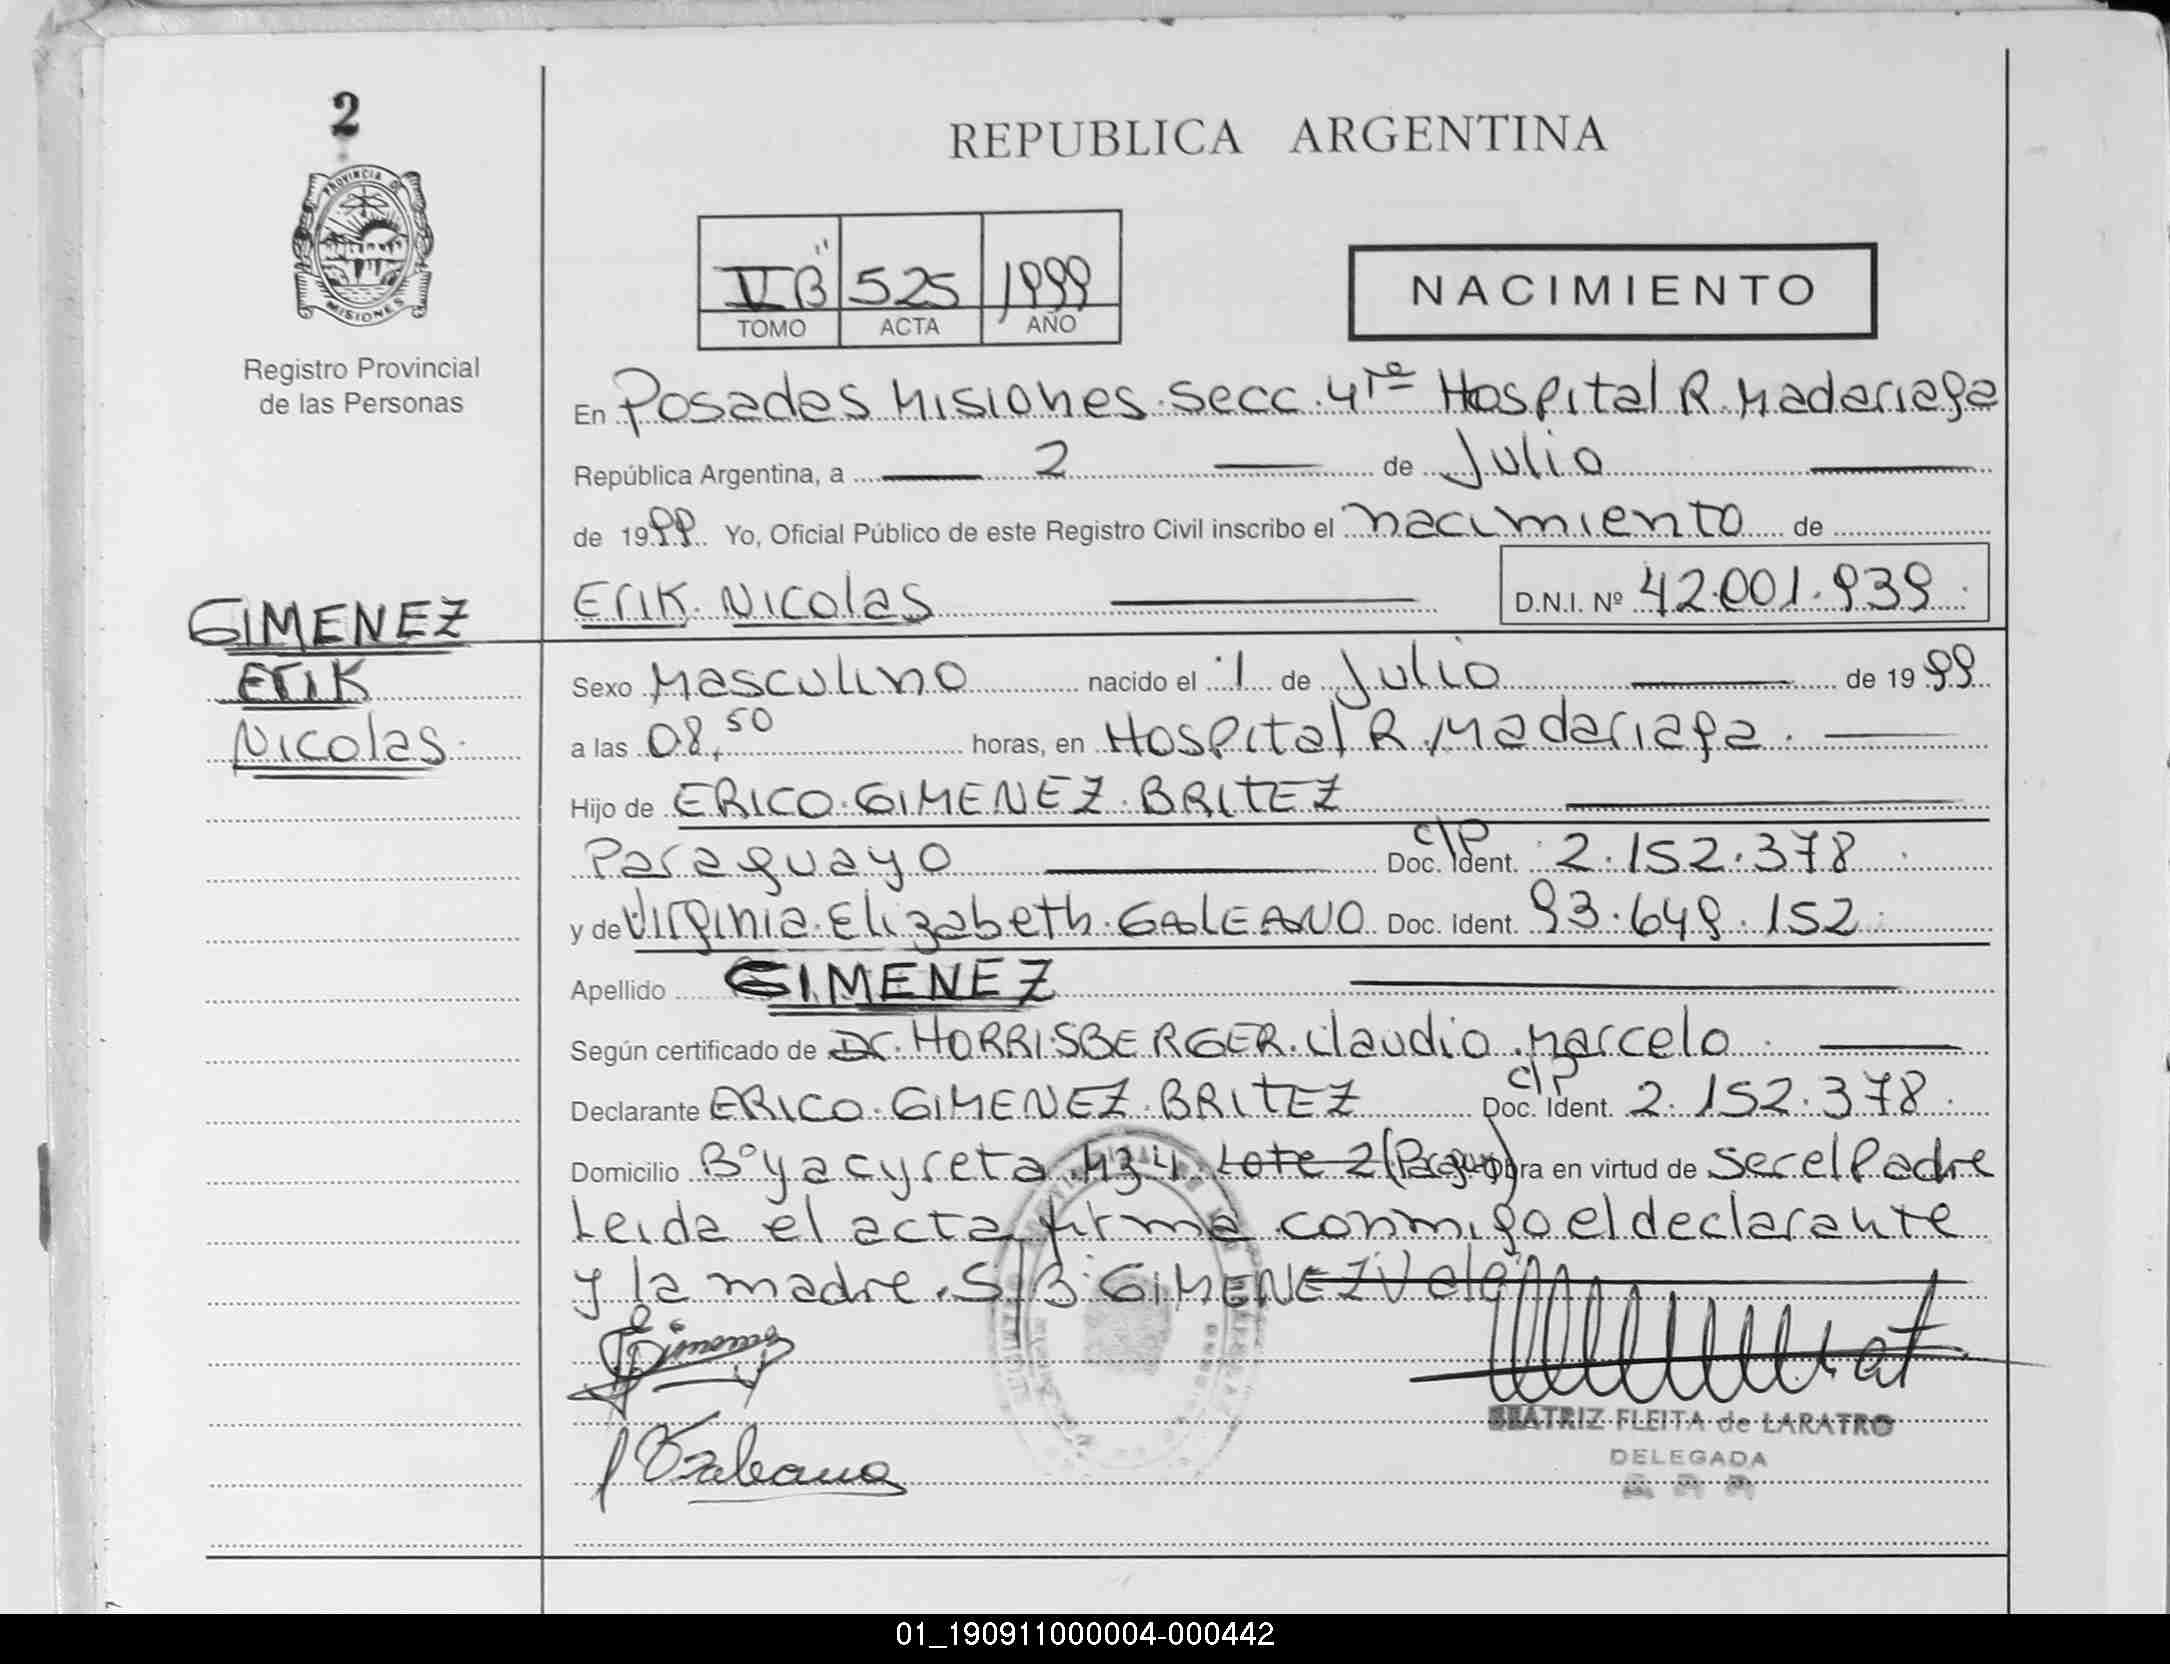 2
PROVINCIA DE
MISIONES
Registro Provincial
de las Personas
REPUBLICA ARGENTINA
V "B" 525 1999
TOMO ACTA AÑO
NACIMIENTO
En Posadas Misiones. Secc. 4ta Hospital R. Madariaga
República Argentina, a 2 de Julio
de 1999 Yo, Oficial Público de este Registro Civil inscribo el nacimiento de
Erik Nicolas D.N.I. Nº 42.001.939
GIMENEZ
Erik
Nicolas
Sexo Masculino nacido el 1 de Julio de 1999
a las 08,50 horas, en Hospital R. Madariaga.
Hijo de ERICO GIMENEZ BRITEZ
Paraguayo C/P Doc. Ident. 2.152.378
y de Virginia Elizabeth GALEANO Doc. Ident. 93.649.152
Apellido GIMENEZ
Según certificado de Dr. HORRISBERGER Claudio Marcelo
Declarante ERICO GIMENEZ BRITEZ C/P Doc. Ident. 2.152.378
Domicilio Bº yacyreta 434 Lote 2 obra en virtud de ser el Padre
Leida el acta firma conmigo el declarante
y la madre. S/B GIMENEZ Vale
BEATRIZ FLEITA de LARATRO
DELEGADA
01_190911000004-000442